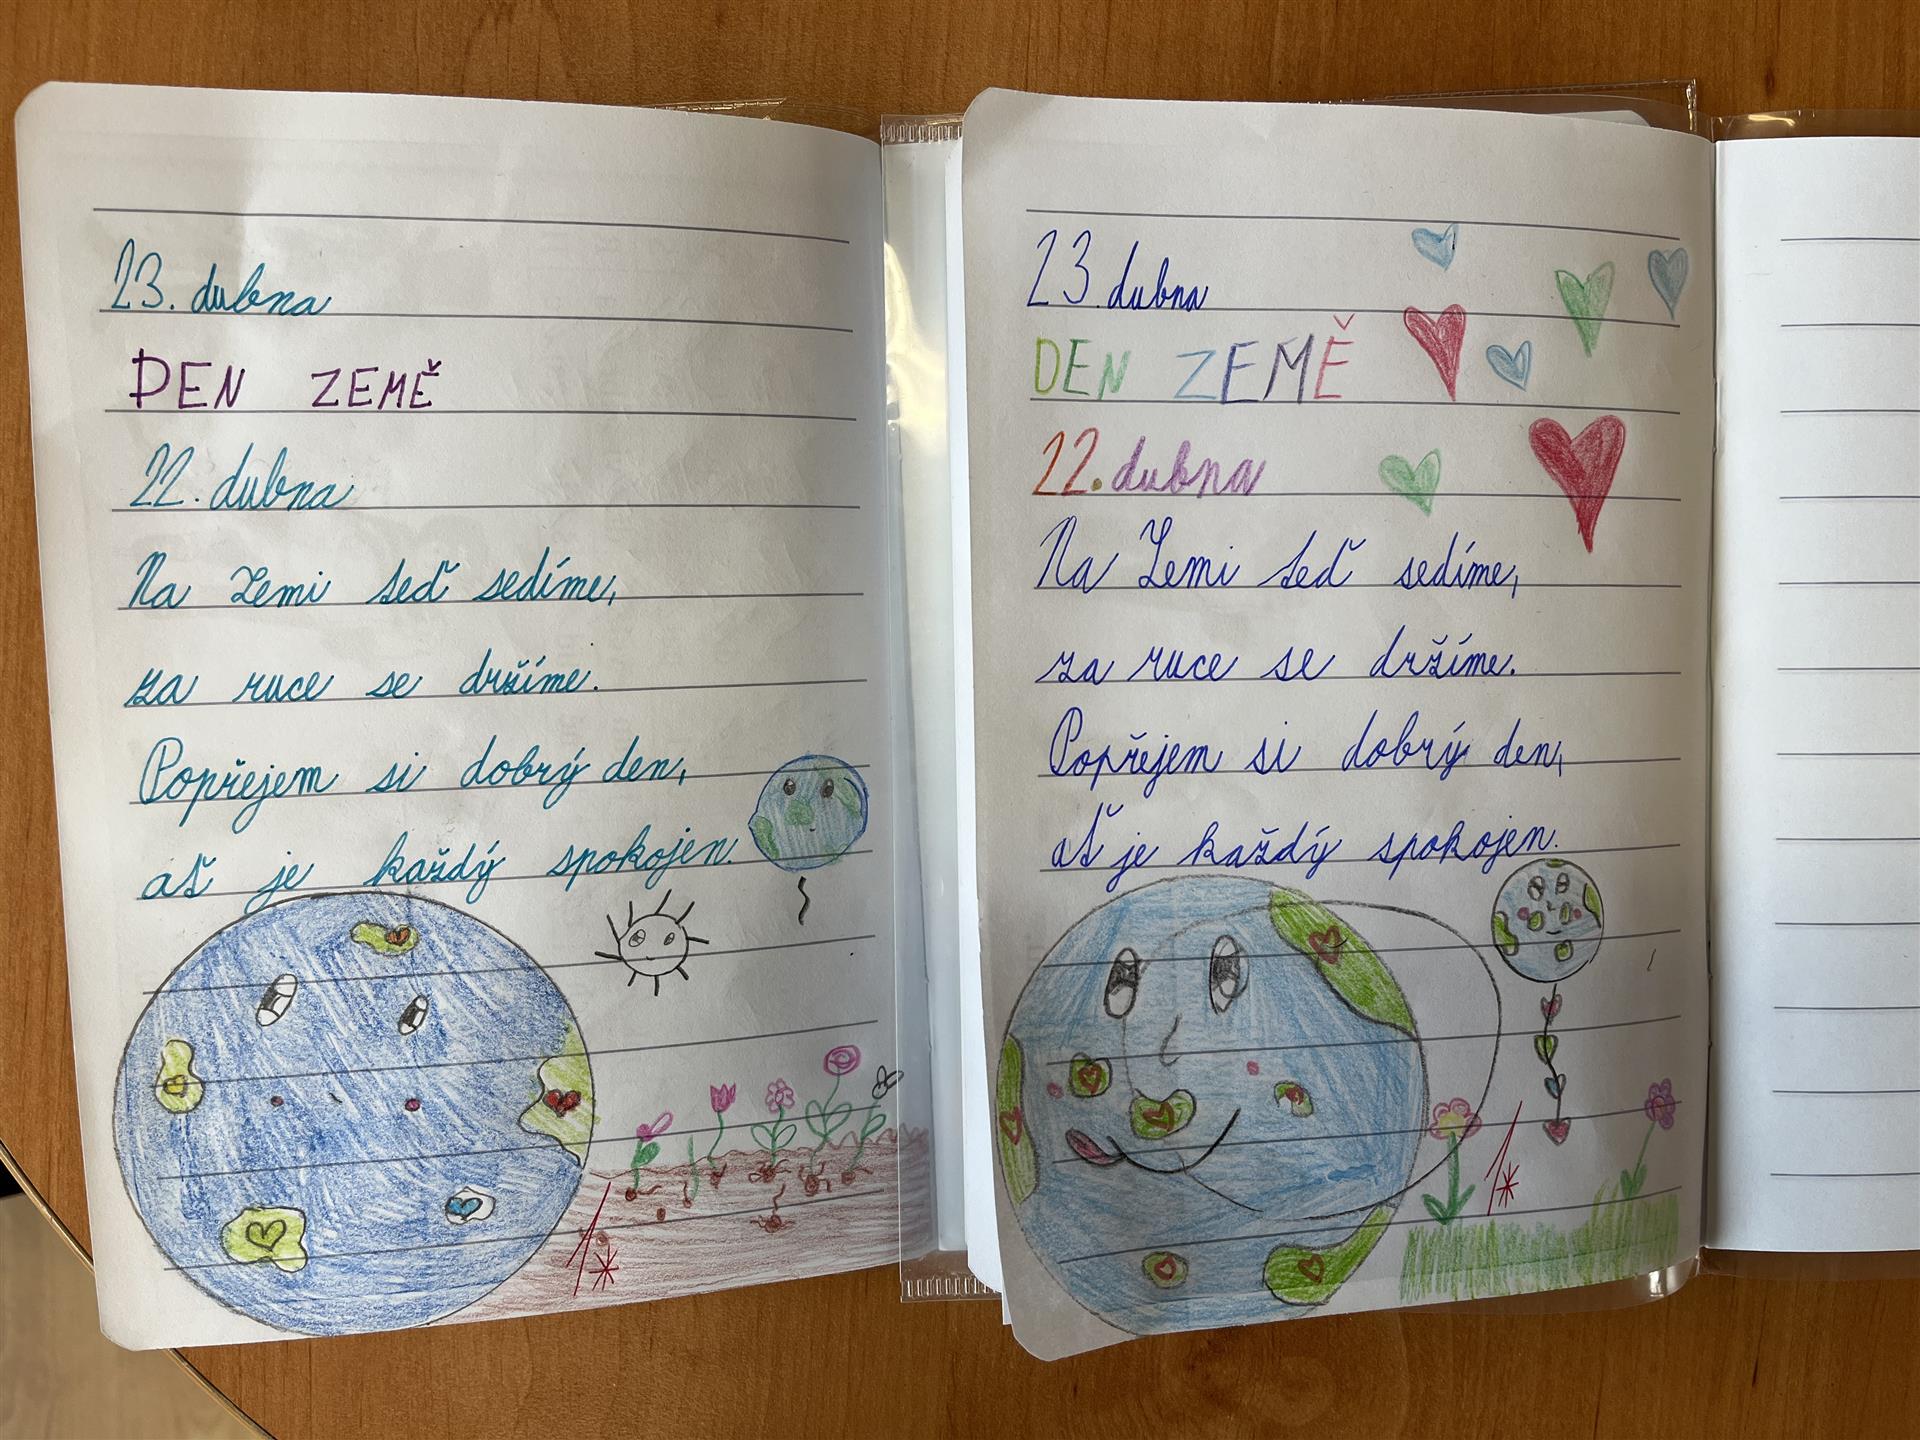 23. dubna
DEN ZEMĚ
22. dubna
Na Zemi teď sedíme,
za ruce se držíme.
Popřejem si dobrý den,
ať je každý spokojen.
1*
23. dubna
DEN ZEMĚ
22. dubna
Na Zemi teď sedíme,
za ruce se držíme.
Popřejem si dobrý den,
ať je každý spokojen.
1*